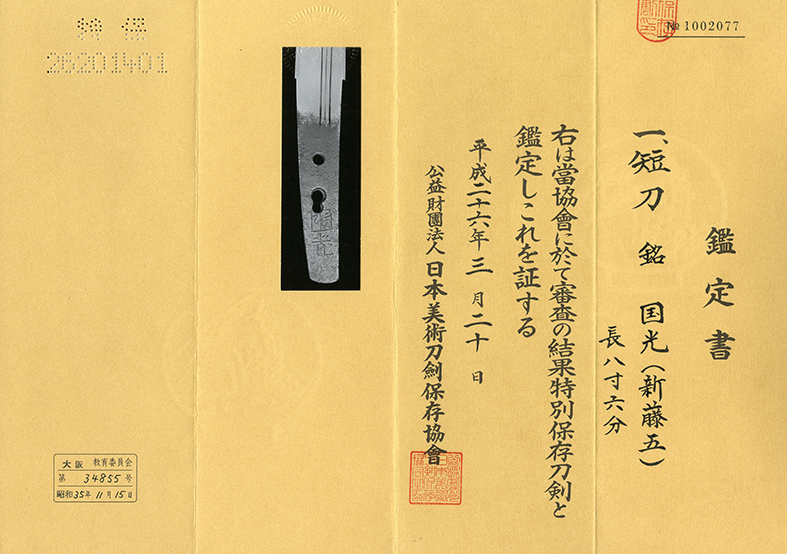 №1002077
鑑定書
一、短刀 銘 国光(新藤五)
長八寸六分
右は當協會に於て審査の結果特別保存刀剣と
鑑定しこれを証する
平成二十六年三月二十日
公益財團法人日本美術刀劍保存協會
国光
特保
26201401
大阪 教育委員会
第 34855 号
昭和35年11月15日